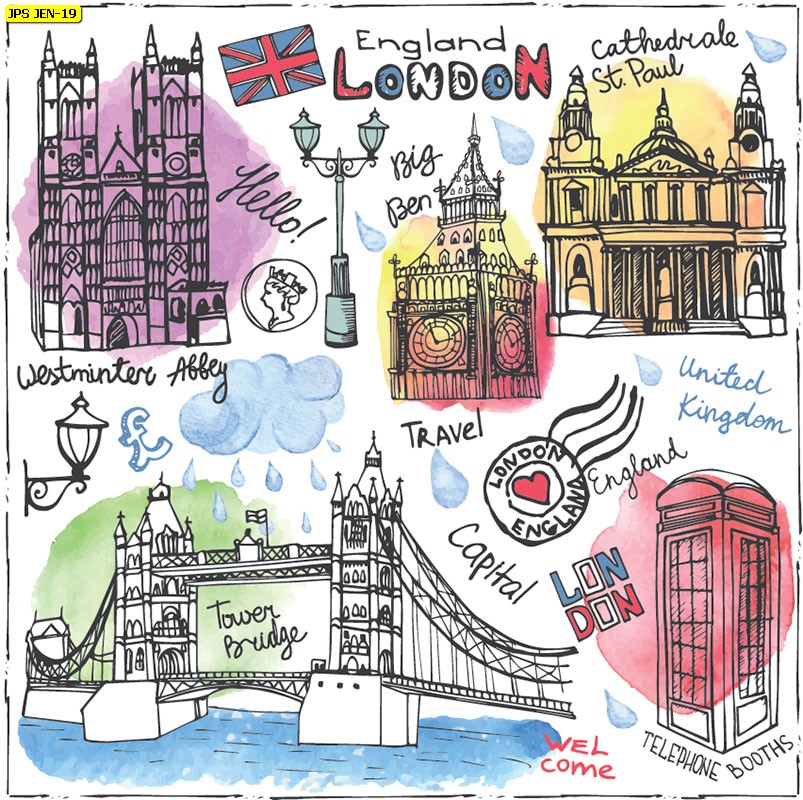 JPS JEN-19
England
LONDON
Cathedrale
St. Paul
Big
Ben
Hello!
Westminter Abbey
United
Kingdom
£
Travel
LONDON
ENGLAND
England
Capital
LON
DON
Tower
Bridge
WEL
come
TELEPHONE BOOTHS